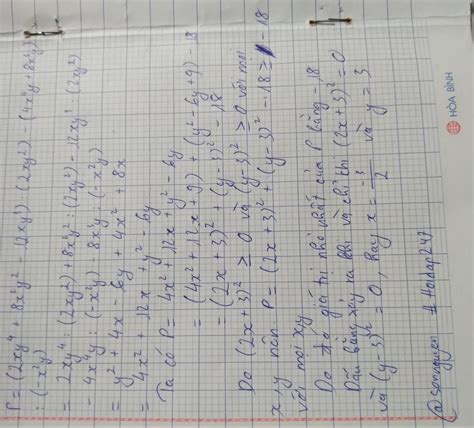 P = (2xy⁴ + 8x²y² - 12xy³) : (2xy²) - (4x⁴y + 8x³y)
: (-x²y)
= 2xy⁴ : (2xy²) + 8x²y² : (2xy²) - 12xy³ : (2xy²)
- 4x⁴y : (-x²y) - 8x³y : (-x²y)
= y² + 4x - 6y + 4x² + 8x
= 4x² + 12x + y² - 6y
Ta có P = 4x² + 12x + y² - 6y
= (4x² + 12x + 9) + (y² - 6y + 9) - 18
= (2x + 3)² + (y - 3)² - 18
Do (2x + 3)² ≥ 0 và (y - 3)² ≥ 0 với mọi
x, y nên P = (2x + 3)² + (y - 3)² - 18 ≥ - 18
với mọi x, y
Do đó giá trị nhỏ nhất của P bằng - 18
Dấu bằng xảy ra khi và chỉ khi (2x + 3)² = 0
và (y - 3)² = 0, hay x = -3/2 và y = 3
#Hoidap247
HÒA BÌNH